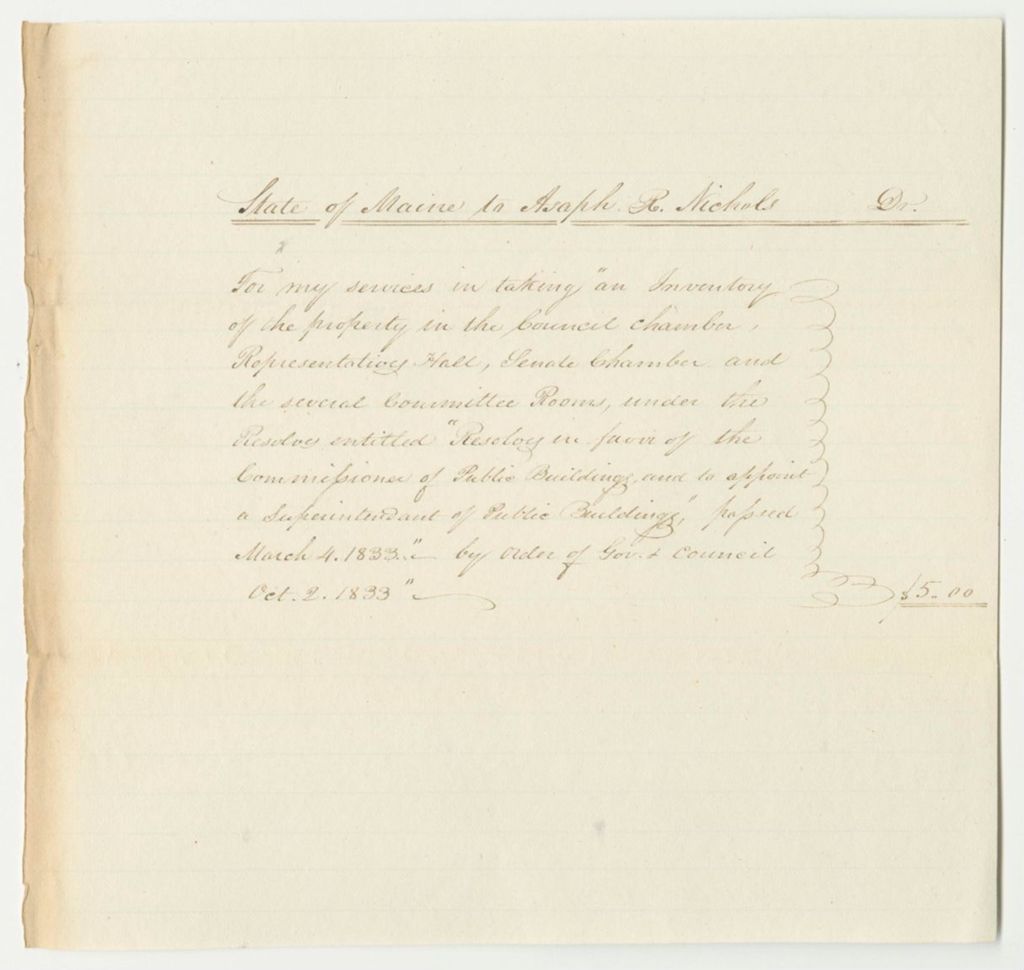 State of Maine to Asaph R. Nichols Dr.
For my services in taking "an Inventory
of the property in the Council Chamber,
Representatives Hall, Senate Chamber and
the several Committee Rooms, under the
Resolves entitled "Resolves in favor of the
Commissioner of Public Buildings, and to appoint
a Superintendant of Public Buildings", passed
March 4. 1833." by order of Gov. & Council
Oct. 2. 1833" $5.00